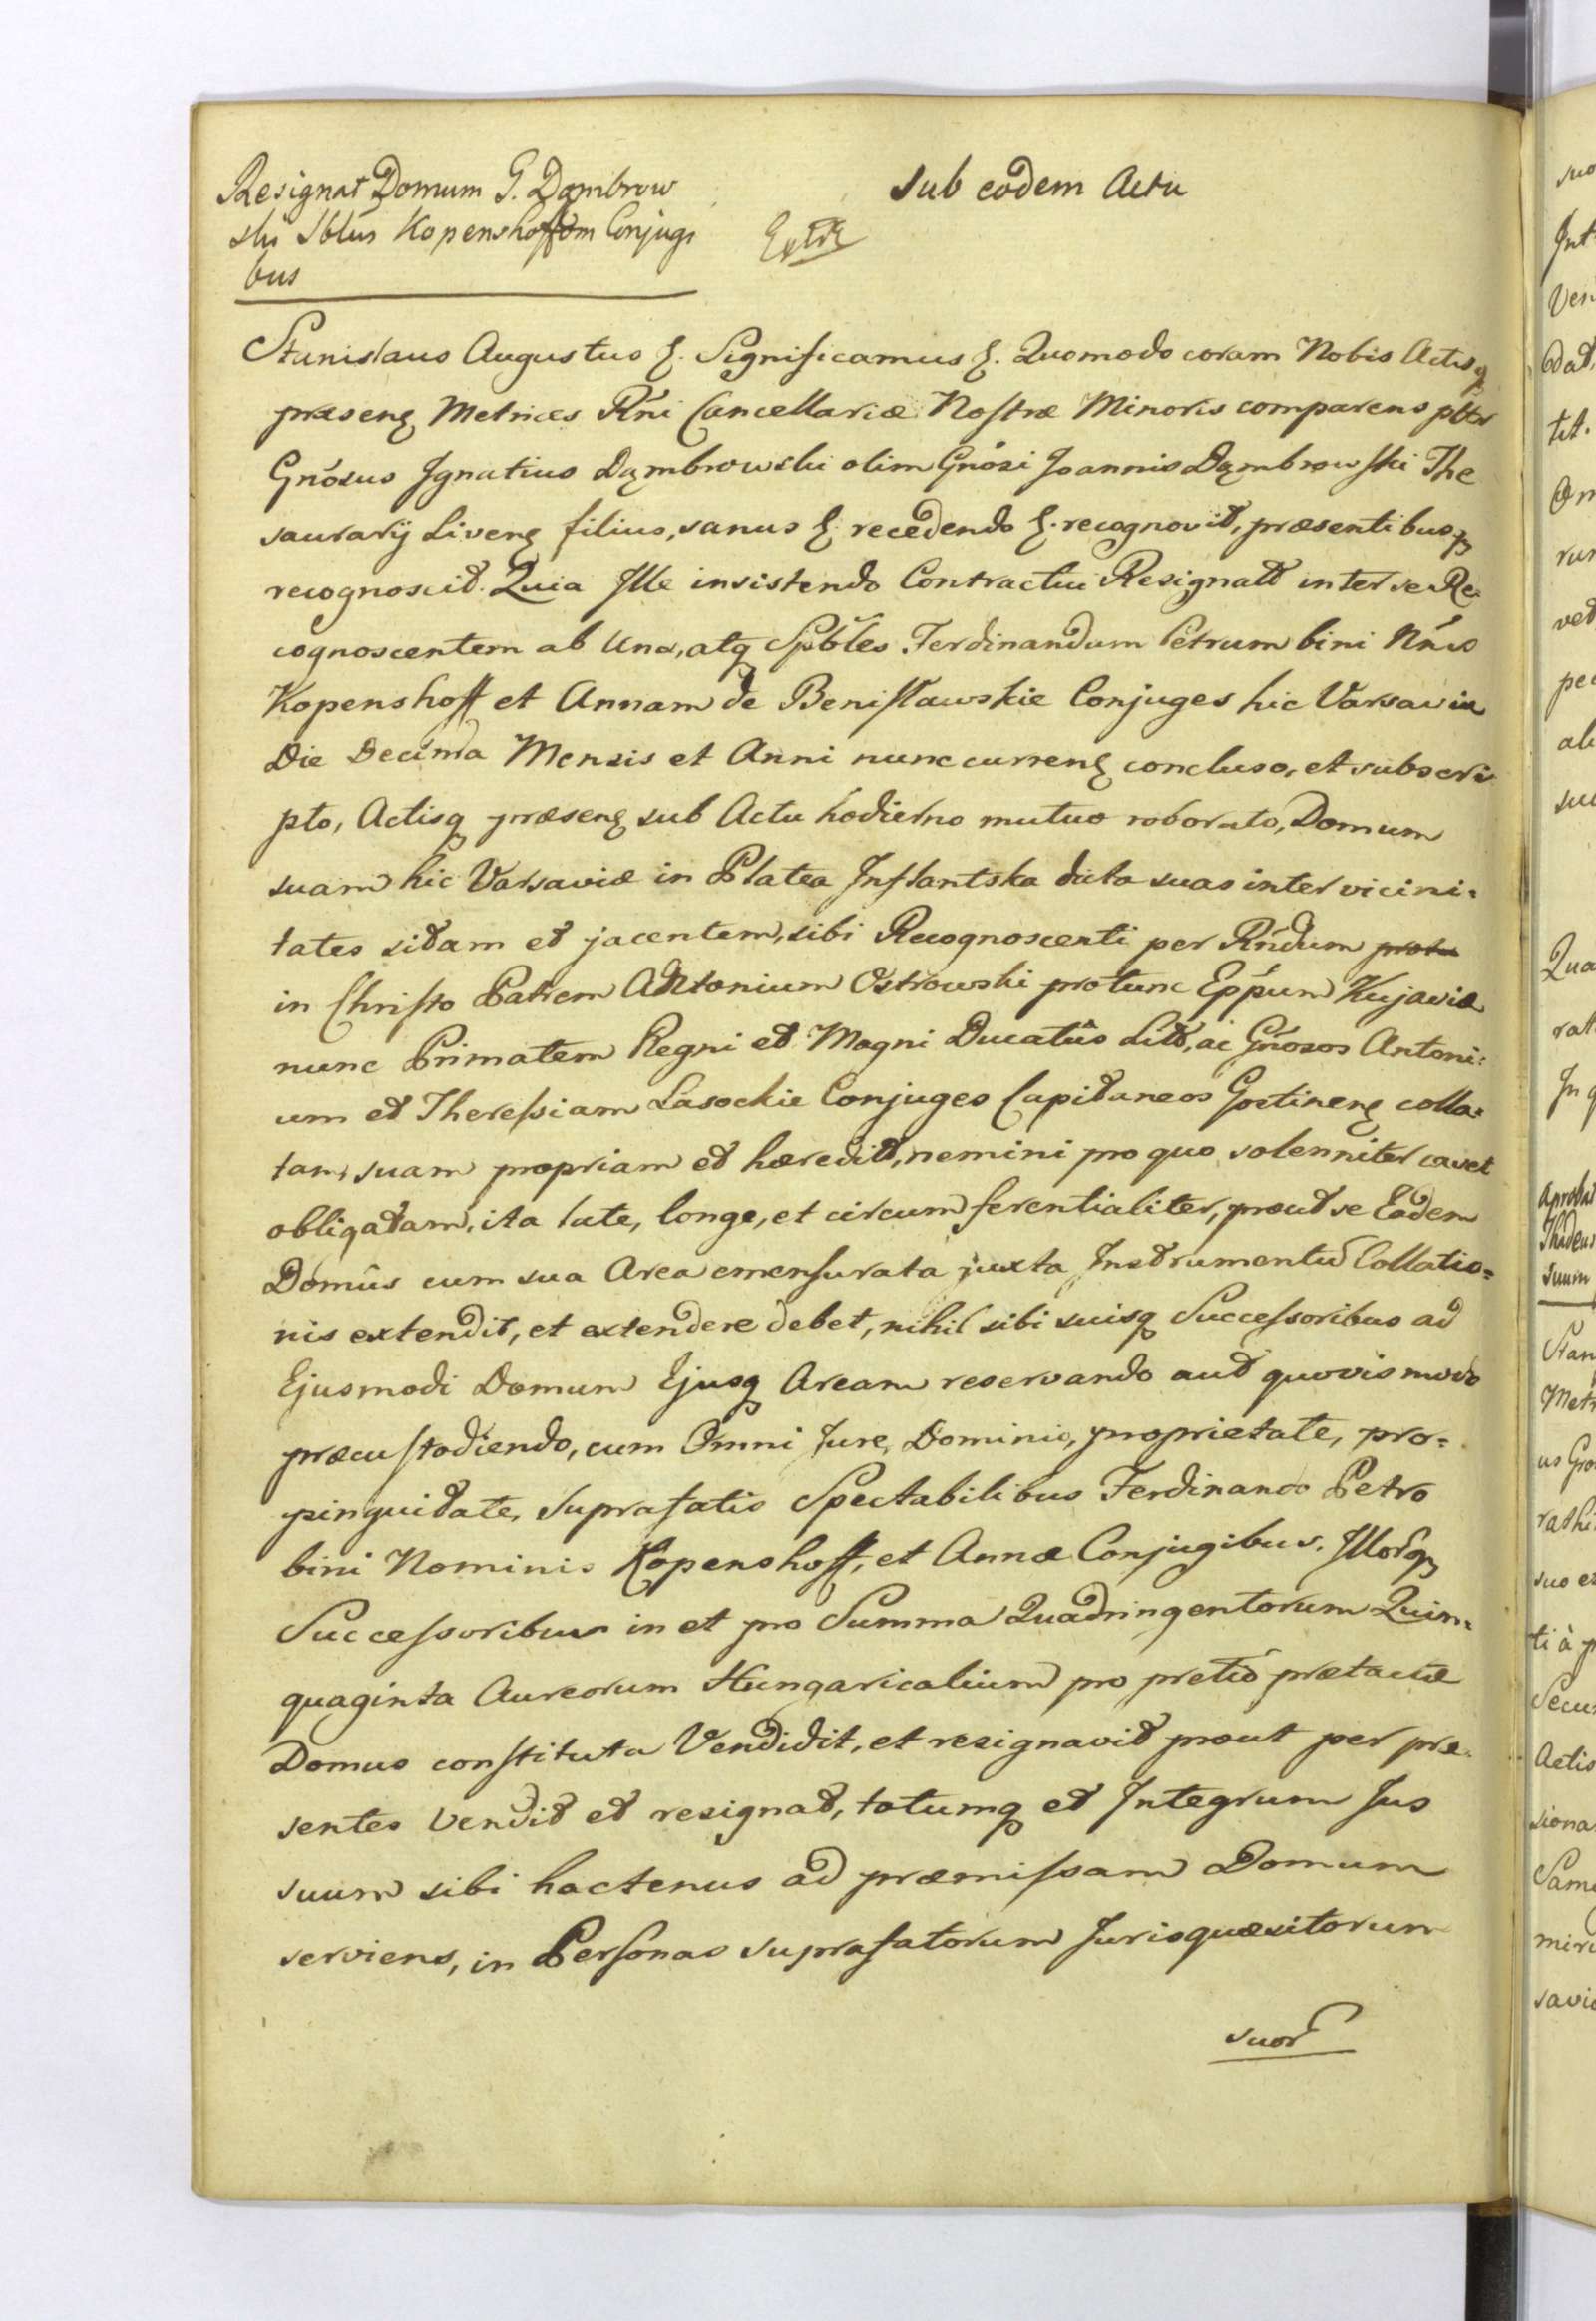 Resignat Domum G. Dąmbrow
ski Sblūs Kopenshoffom Conjugi
bus
Sub eodem Actu
Extr
Stanislaus Augustus &. Significamus &. Quomodo coram Nobis Actisq
præsenꝫ Metrices Rńi Cancellariæ Nostræ Minoris comparens pltr
Gnósus Ignatius Dąmbrowski olim Gnósi Joannis Dąmbrowski The
saurarij Livenꝫ filius, sanus &. recedendo &. recognovit, præsentibusq
recognoscit. Quia Ille insistendo Contractui Resignatt inter se Re-
cognoscentem ab Una, atq Spbłes Ferdinandum Petrum bini Nńis
Kopenshoff et Annam de Benisławskie Conjuges hic Varsaviæ
Die Decima Mensis et Anni nunc currenꝫ concluso, et subscri-
pto, Actisq præsenꝫ sub Actu hodierno mutuo roborato, Domum
suam hic Varsaviæ in Platea Inflantska dicta suas inter vicini=
tates sitam et jacentem, sibi Recognoscenti per Rńdum
in Christo Patrem Antonium Ostrowski protunc Eppum Kujaviæ
nunc Primatem Regni et Magni Ducatûs Litt, ac Gnósos Antoni=
um et Theresiam Lasockie Conjuges Capitaneos Gostinenꝫ colla=
tam, suam propriam et hæreditt, nemini pro quo solenniter cavet
obligatam, ita late, longe, et circumferentialiter, prout se Eadem
Domûs cum sua Area emensurata juxta Instrumentū Collatio=
nis extendit, et extendere debet, nihil sibi suisq Successoribus ad
Ejusmodi Domum Ejusq Aream reservando aut quovis modo
præcustodiendo, cum Omni Jure, Dominio, proprietate, pro=
pinquitate, Suprafatis Spectabilibus Ferdinando Petro
bini Nominis Kopenshoff, et Annæ Conjugibus. Illorq
Successoribus in et pro Summa Quadringentorum Quin=
quaginta Aureorum Hungaricalium pro pretio prætactæ
Domus constituta Vendidit, et resignavit prout per præ-
sentes vendit et resignat, totumq et Integrum Jus
suum sibi hactenus ad præmissam Domum
serviens, in Personas suprafatorum Jurisquæsitorum
suor